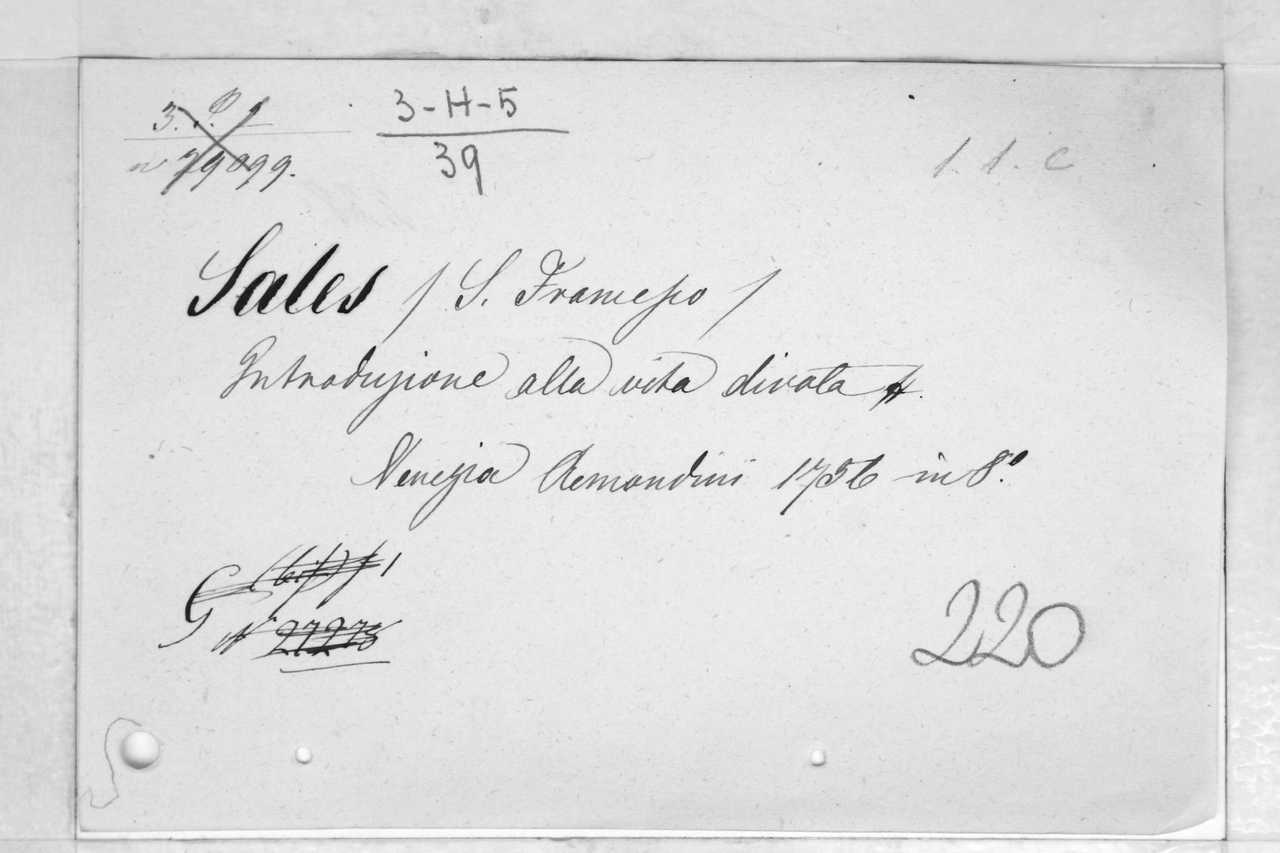 3-H-5
39
1. 1. c
Sales / S. Francesco /
Introduzione alla vita divota
Venezia Remondini 1756 in 8.º
G
nº 27273
220